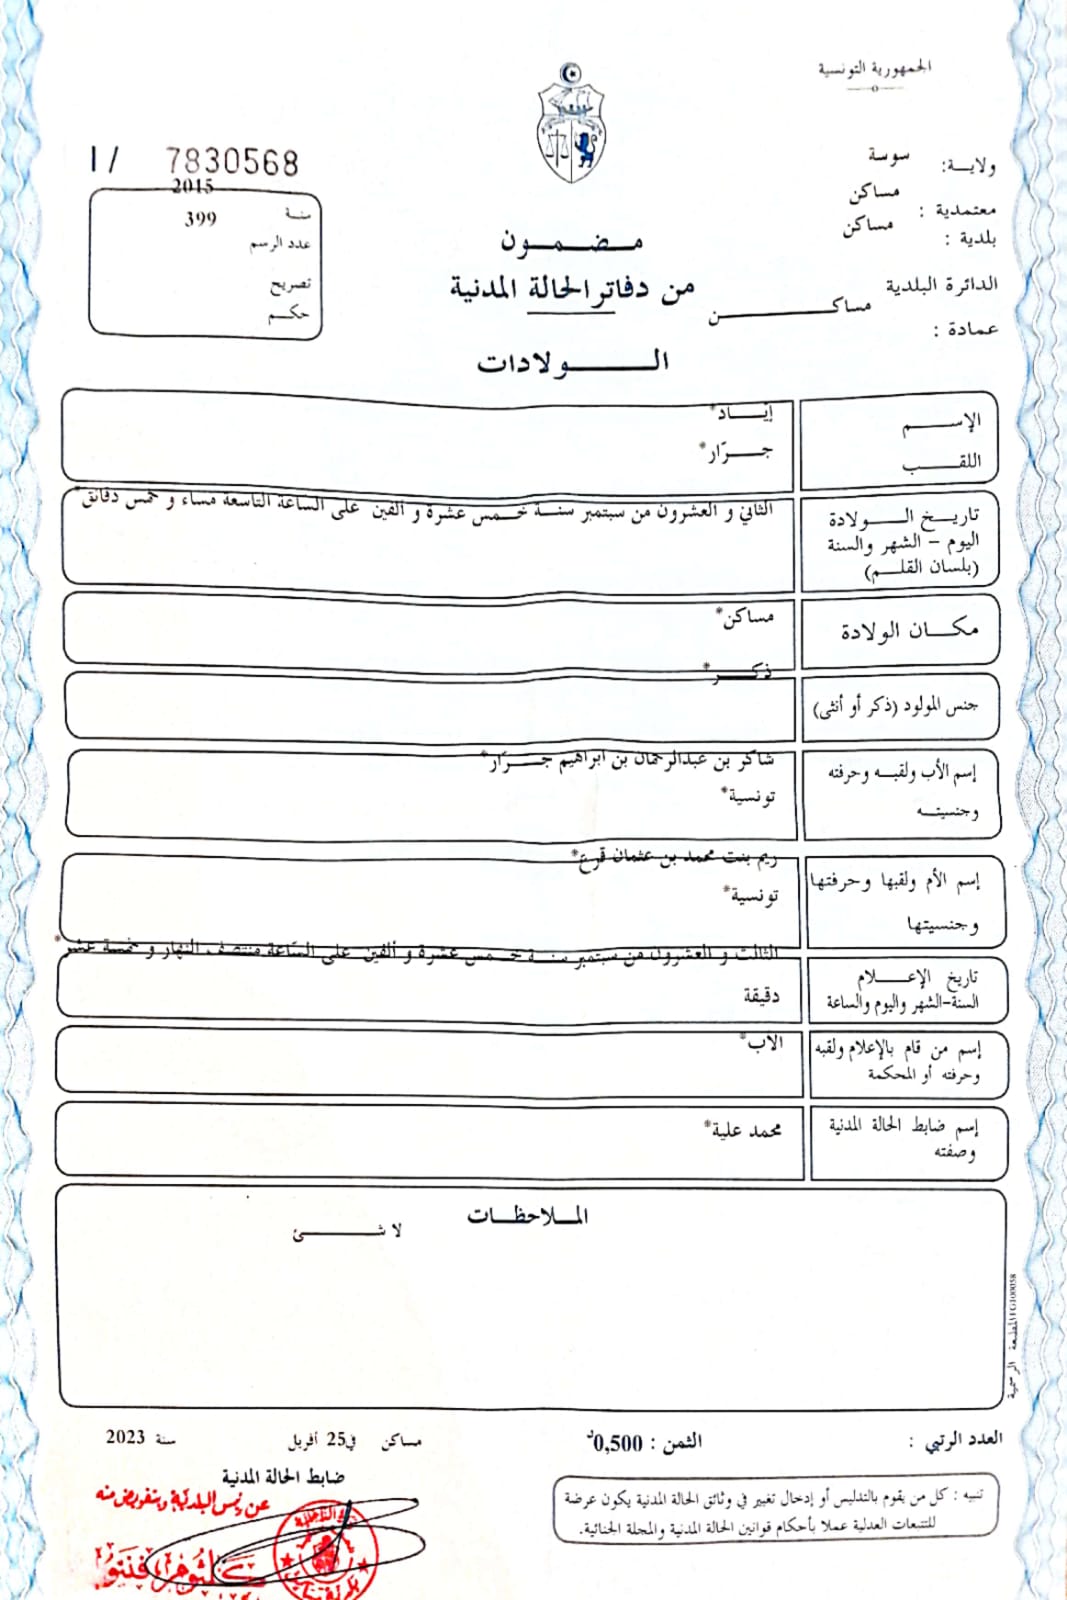 الجمهورية التونسية
ولايـة: سوسة
معتمدية : مساكن
بلدية : مساكن
الدائرة البلدية مساكـــــــــن
عمادة :
I / 7830568
2015
سنة
399
عدد الرسم
تصريح
حكم
مـضـمـون
من دفاتر الحالة المدنية
الـــــولادات
الإســـم
إيـــاد*
اللقـــب
جـــرّار*
تاريـخ الـــولادة
اليوم - الشهر والسنة
(بلسان القلـم)
الثاني و العشرون من سبتمبر سنـة خـمس عشرة و ألفين على الساعة التاسعة مساء و خمس دقائق*
مكـان الولادة
مساكن*
جنس المولود (ذكر أو أنثى)
ذكـــر*
إسم الأب ولقبـه وحرفته
وجنسيتـه
شاكر بن عبدالرحمان بن ابراهيم جـــرّار*
تونسية*
إسم الأم ولقبها وحرفتها
وجنسيتها
ريم بنت محمد بن عثمان قرع*
تونسية*
تاريخ الإعـــلام
السنة-الشهر واليوم والساعة
الثالث و العشرون من سبتمبر سنـة خـمس عشرة و ألفين على الساعة منتصف النهار و خمسة عشر*
دقيقة
إسم من قام بالإعلام ولقبه
وحرفته أو المحكمة
الأب*
إسم ضابط الحالة المدنية
وصفته
محمد علية*
المـلاحظـات
لا شـــــئ
المطبعة الرسمية
العدد الرتبي :
الثمن : 0,500د
مساكن في25 أفريل سنة 2023
ضابط الحالة المدنية
عن رئيس البلدية وبتفويض منه
تنبيه : كل من يقوم بالتدليس أو إدخال تغيير في وثائق الحالة المدنية يكون عرضة
للتتبعات العدلية عملا بأحكام قوانين الحالة المدنية والمجلة الجنائية.